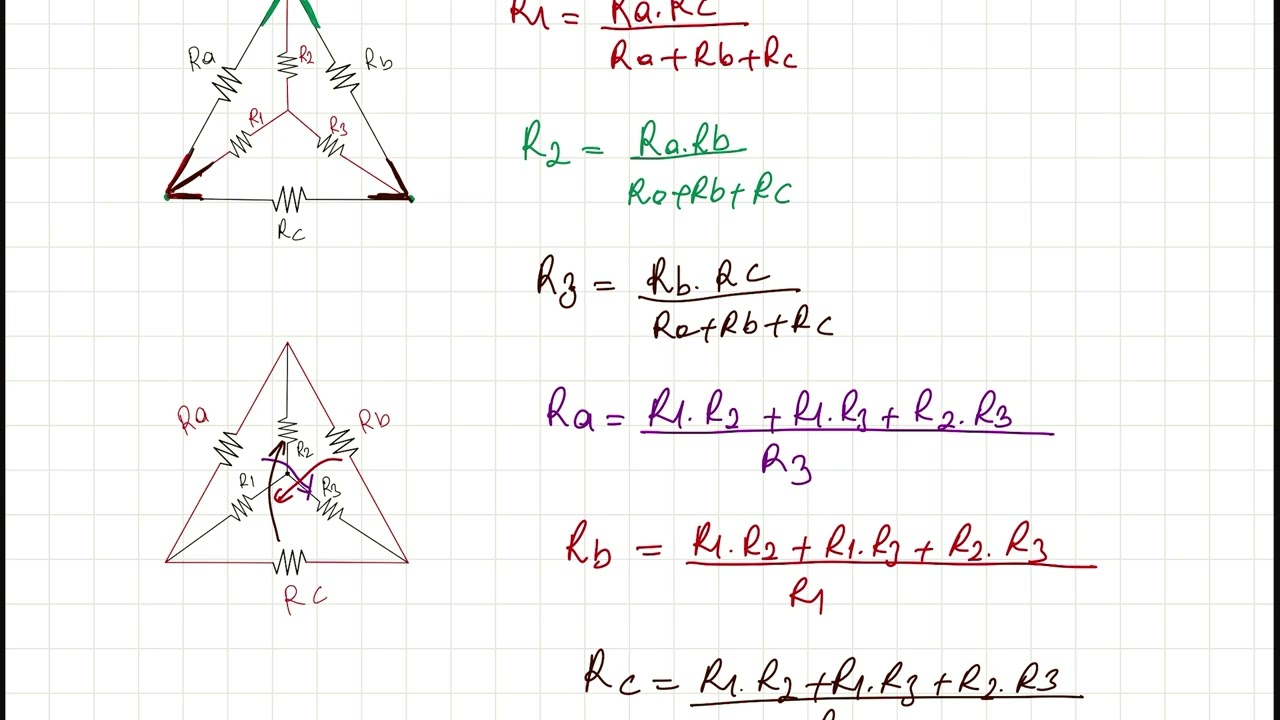 R1 = Ra.Rc / Ra+Rb+Rc
Ra
R2
Rb
R1
R3
Rc
R2 = Ra.Rb / Ra+Rb+Rc
R3 = Rb.Rc / Ra+Rb+Rc
Ra
Rb
R2
R1
R3
Rc
Ra = R1.R2 + R1.R3 + R2.R3 / R3
Rb = R1.R2 + R1.R3 + R2.R3 / R1
Rc = R1.R2 + R1.R3 + R2.R3